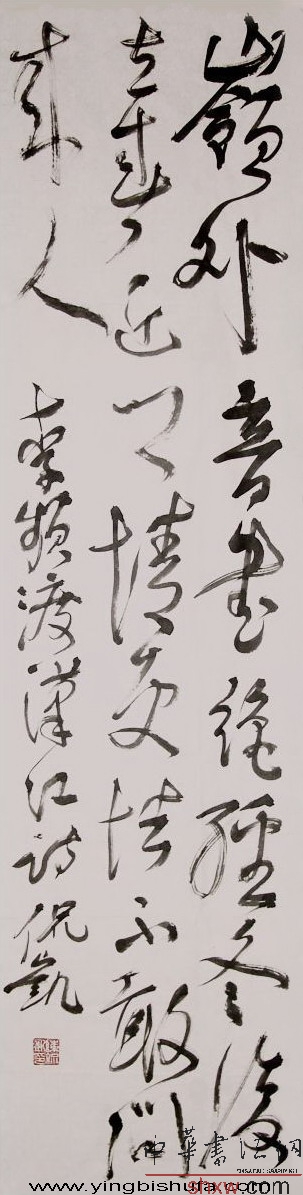 嶺外音書絕經冬復
立春近鄉情更怯不敢問
來人
李頻渡漢江詩 倪凱
中華書法網
www.yingbishufa.com